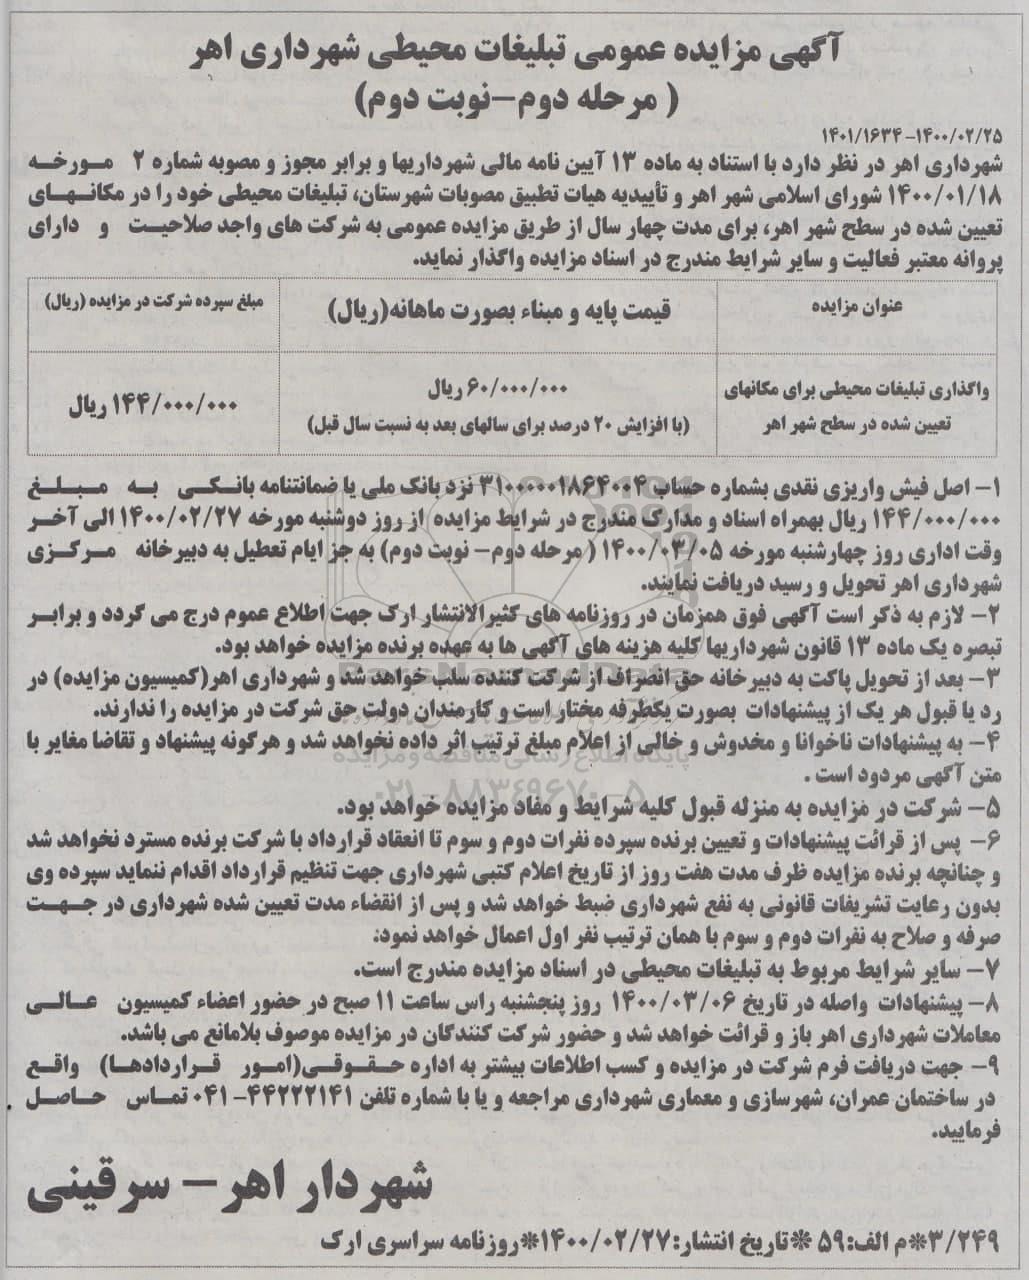 آگهی مزایده عمومی تبلیغات محیطی شهرداری اهر
( مرحله دوم-نوبت دوم)
۱۴۰۱/۱۶۳۴-۱۴۰۰/۰۲/۲۵
شهرداری اهر در نظر دارد با استناد به ماده ۱۳ آیین نامه مالی شهرداریها و برابر مجوز و مصوبه شماره ۲ مورخه
۱۴۰۰/۰۱/۱۸ شورای اسلامی شهر اهر و تأییدیه هیات تطبیق مصوبات شهرستان، تبلیغات محیطی خود را در مکانهای
تعیین شده در سطح شهر اهر، برای مدت چهار سال از طریق مزایده عمومی به شرکت های واجد صلاحیت و دارای
پروانه معتبر فعالیت و سایر شرایط مندرج در اسناد مزایده واگذار نماید.
عنوان مزایده
قیمت پایه و مبناء بصورت ماهانه(ریال)
مبلغ سپرده شرکت در مزایده (ریال)
واگذاری تبلیغات محیطی برای مکانهای
تعیین شده در سطح شهر اهر
۶۰/۰۰۰/۰۰۰ ریال
(با افزایش ۲۰ درصد برای سالهای بعد به نسبت سال قبل)
۱۴۴/۰۰۰/۰۰۰ ریال
۱- اصل فیش واریزی نقدی بشماره حساب ۳۱۰۰۰۰۰۱۸۶۴۰۰۴ نزد بانک ملی یا ضمانتنامه بانکی به مبلغ
۱۴۴/۰۰۰/۰۰۰ ریال بهمراه اسناد و مدارک مندرج در شرایط مزایده از روز دوشنبه مورخه ۱۴۰۰/۰۲/۲۷ الی آخر
وقت اداری روز چهارشنبه مورخه ۱۴۰۰/۰۳/۰۵ ( مرحله دوم- نوبت دوم) به جز ایام تعطیل به دبیرخانه مرکزی
شهرداری اهر تحویل و رسید دریافت نمایند.
۲- لازم به ذکر است آگهی فوق همزمان در روزنامه های کثیرالانتشار ارک جهت اطلاع عموم درج می گردد و برابر
تبصره یک ماده ۱۳ قانون شهرداریها کلیه هزینه های آگهی ها به عهده برنده مزایده خواهد بود.
۳- بعد از تحویل پاکت به دبیرخانه حق انصراف از شرکت کننده سلب خواهد شد و شهرداری اهر(کمیسیون مزایده) در
رد یا قبول هر یک از پیشنهادات بصورت یکطرفه مختار است و کارمندان دولت حق شرکت در مزایده را ندارند.
۴- به پیشنهادات ناخوانا و مخدوش و خالی از اعلام مبلغ ترتیب اثر داده نخواهد شد و هرگونه پیشنهاد و تقاضا مغایر با
متن آگهی مردود است .
۵- شرکت در مزایده به منزله قبول کلیه شرایط و مفاد مزایده خواهد بود.
۶- پس از قرائت پیشنهادات و تعیین برنده سپرده نفرات دوم و سوم تا انعقاد قرارداد با شرکت برنده مسترد نخواهد شد
و چنانچه برنده مزایده ظرف مدت هفت روز از تاریخ اعلام کتبی شهرداری جهت تنظیم قرارداد اقدام ننماید سپرده وی
بدون رعایت تشریفات قانونی به نفع شهرداری ضبط خواهد شد و پس از انقضاء مدت تعیین شده شهرداری در جهت
صرفه و صلاح به نفرات دوم و سوم با همان ترتیب نفر اول اعمال خواهد نمود:
۷- سایر شرایط مربوط به تبلیغات محیطی در اسناد مزایده مندرج است.
۸- پیشنهادات واصله در تاریخ ۱۴۰۰/۰۳/۰۶ روز پنجشنبه راس ساعت ۱۱ صبح در حضور اعضاء کمیسیون عالی
معاملات شهرداری اهر باز و قرائت خواهد شد و حضور شرکت کنندگان در مزایده موصوف بلامانع می باشد.
۹- جهت دریافت فرم شرکت در مزایده و کسب اطلاعات بیشتر به اداره حقوقی(امور قراردادها) واقع
در ساختمان عمران، شهرسازی و معماری شهرداری مراجعه و یا با شماره تلفن ۴۴۲۲۲۱۴۱-۰۴۱ تماس حاصل
فرمایید.
شهردار اهر - سرقینی
۳/۲۴۹*م الف:۵۹ *تاریخ انتشار:۱۴۰۰/۰۲/۲۷*روزنامه سراسری ارک
ParsNamadData
پایگاه اطلاع رسانی مناقصه و مزایده
۰۲۱-۸۸۳۴۹۶۷۰-۵